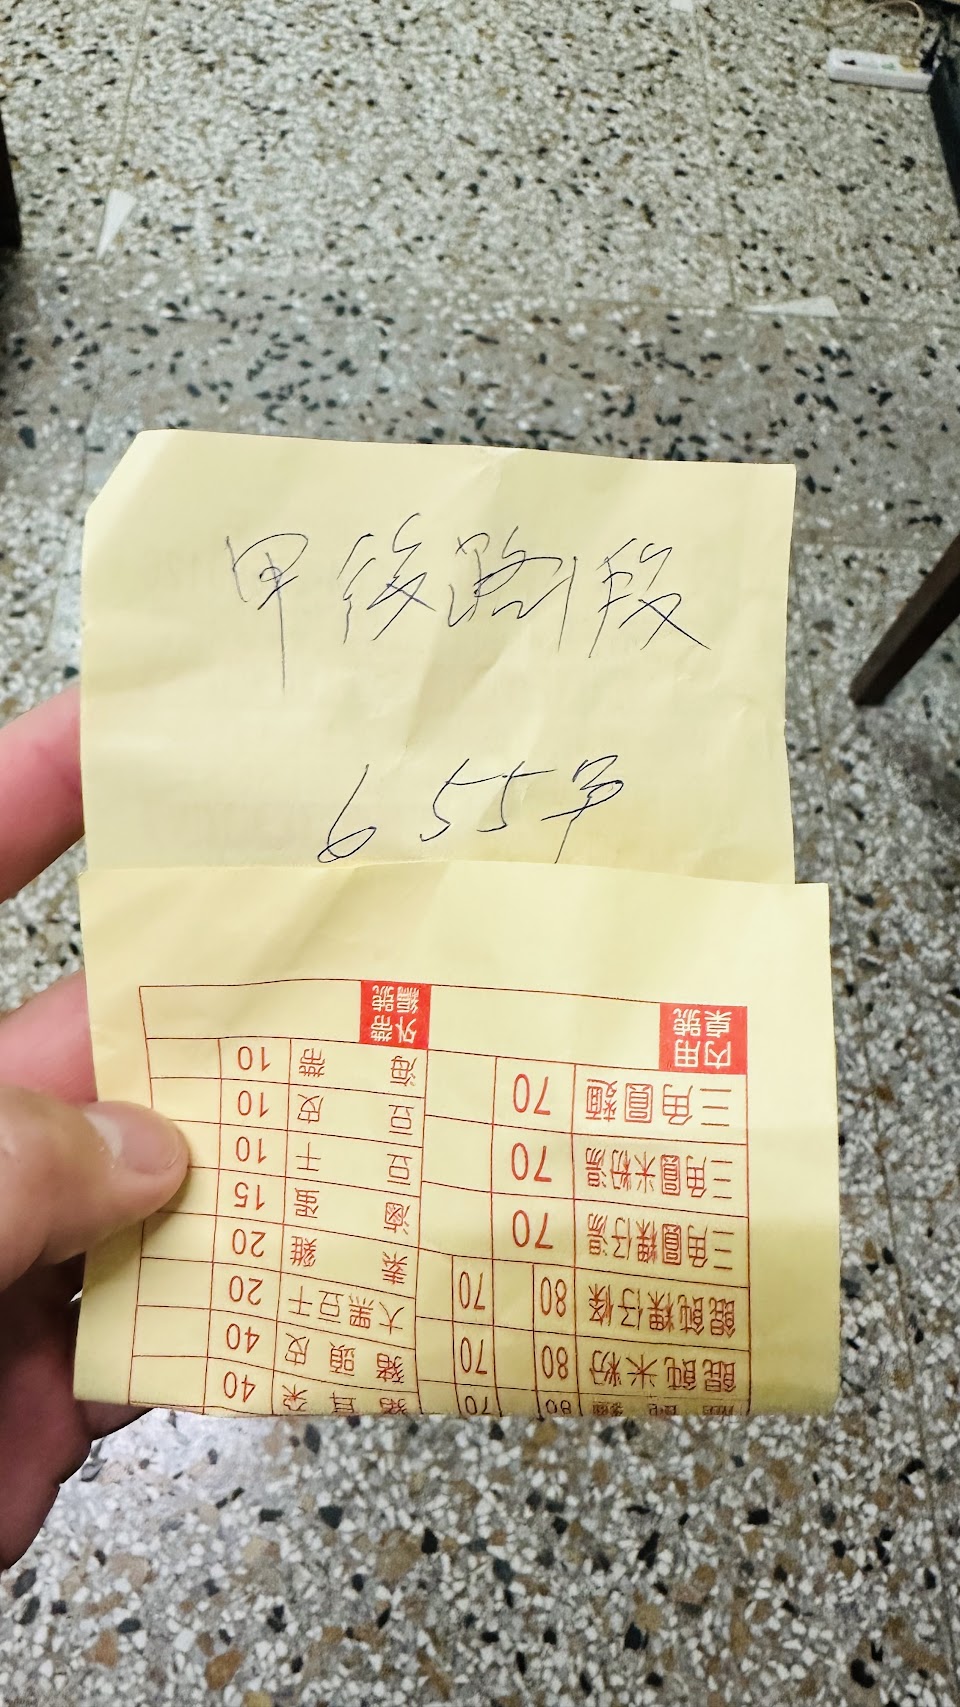 甲後路1段
655号
內用桌號
三角圓麵 70
三角圓米粉湯 70
三角圓粿仔湯 70
餛飩粿仔條 80 70
餛飩米粉 80 70
80 70
外帶編號
海帶 10
豆皮 10
豆干 10
滷蛋 15
素雞 20
大黑豆干 20
豬頭皮 40
豬耳朵 40